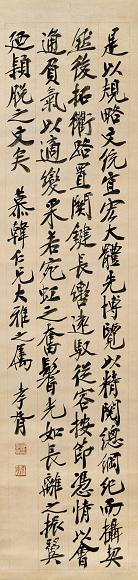 是以規略文統宜宏大體先博覽以精閱總綱紀而攝契
然後拓衢路置關鍵長轡遠馭從容按節憑情以會
通負氣以適變采若宛虹之奮鬐光如長離之振翼
廼穎脫之文矣 慕韓仁兄大雅之屬 孝胥